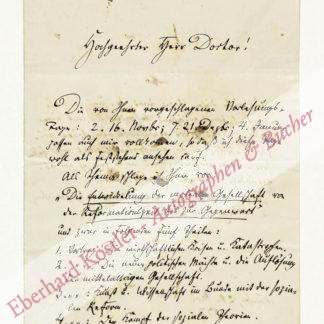 Hochgeehrter Herr Doctor!
Die von Ihnen vorgeschlagenen Vorlesungs-
Tage: 2. 16. Novbr; 7. 21. Dezb; 4. Januar
passen auch mir vollkommen, so daß ich diese
wohl als feststehend ansehen darf.
Als Thema schlage ich Ihnen vor
"Die Entwickelung der modernen Gesellschaft von
der Reformationszeit bis zur Gegenwart
und zwar in folgenden fünf Theilen:
1. Vortrag: wirthschaftlichen Krisen u. Katastrophen.
2. Die neuen politischen Mächte u. die Auflösung
der mittelaltrigen Gesellschaft.
Kunst u. Wissenschaft im Bunde mit der sozia-
len Reform.
4. Der Kampf der sozialen Theorien.
Eberhard Köstler - Autographen & Bücher